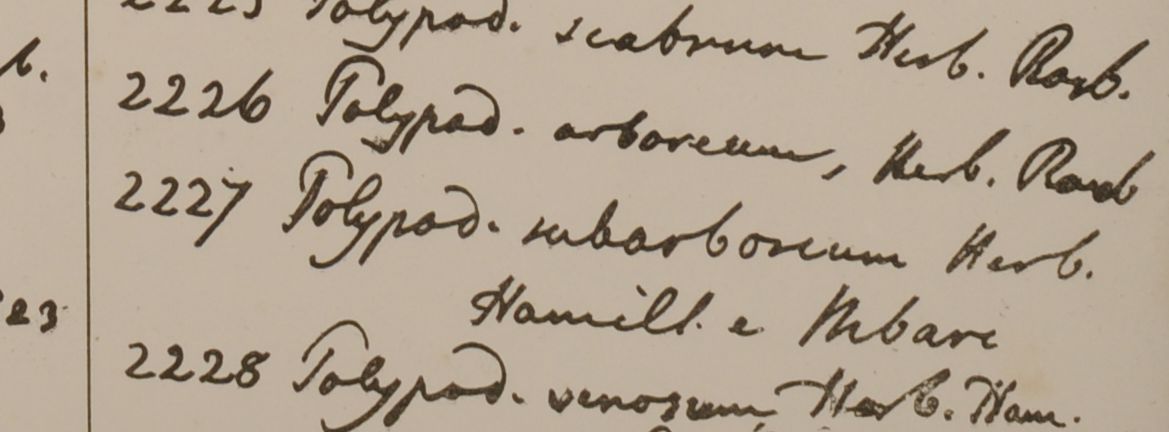 2225 Polypod. scabrum Herb. Roxb.
b.
2226 Polypod. arboreum, Herb. Roxb
2227 Polypod. subarboreum Herb.
Hamilt. e
23
2228 Polypod. venosum Herb. Ham.